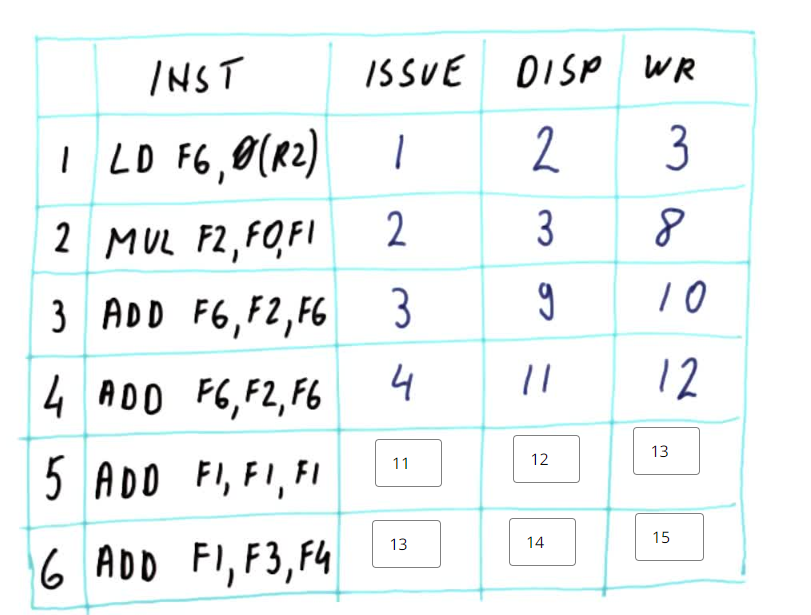 INST ISSUE DISP WR
1 LD F6, 0(R2) 1 2 3
2 MUL F2, F0, F1 2 3 8
3 ADD F6, F2, F6 3 9 10
4 ADD F6, F2, F6 4 11 12
5 ADD F1, F1, F1 11 12 13
6 ADD F1, F3, F4 13 14 15